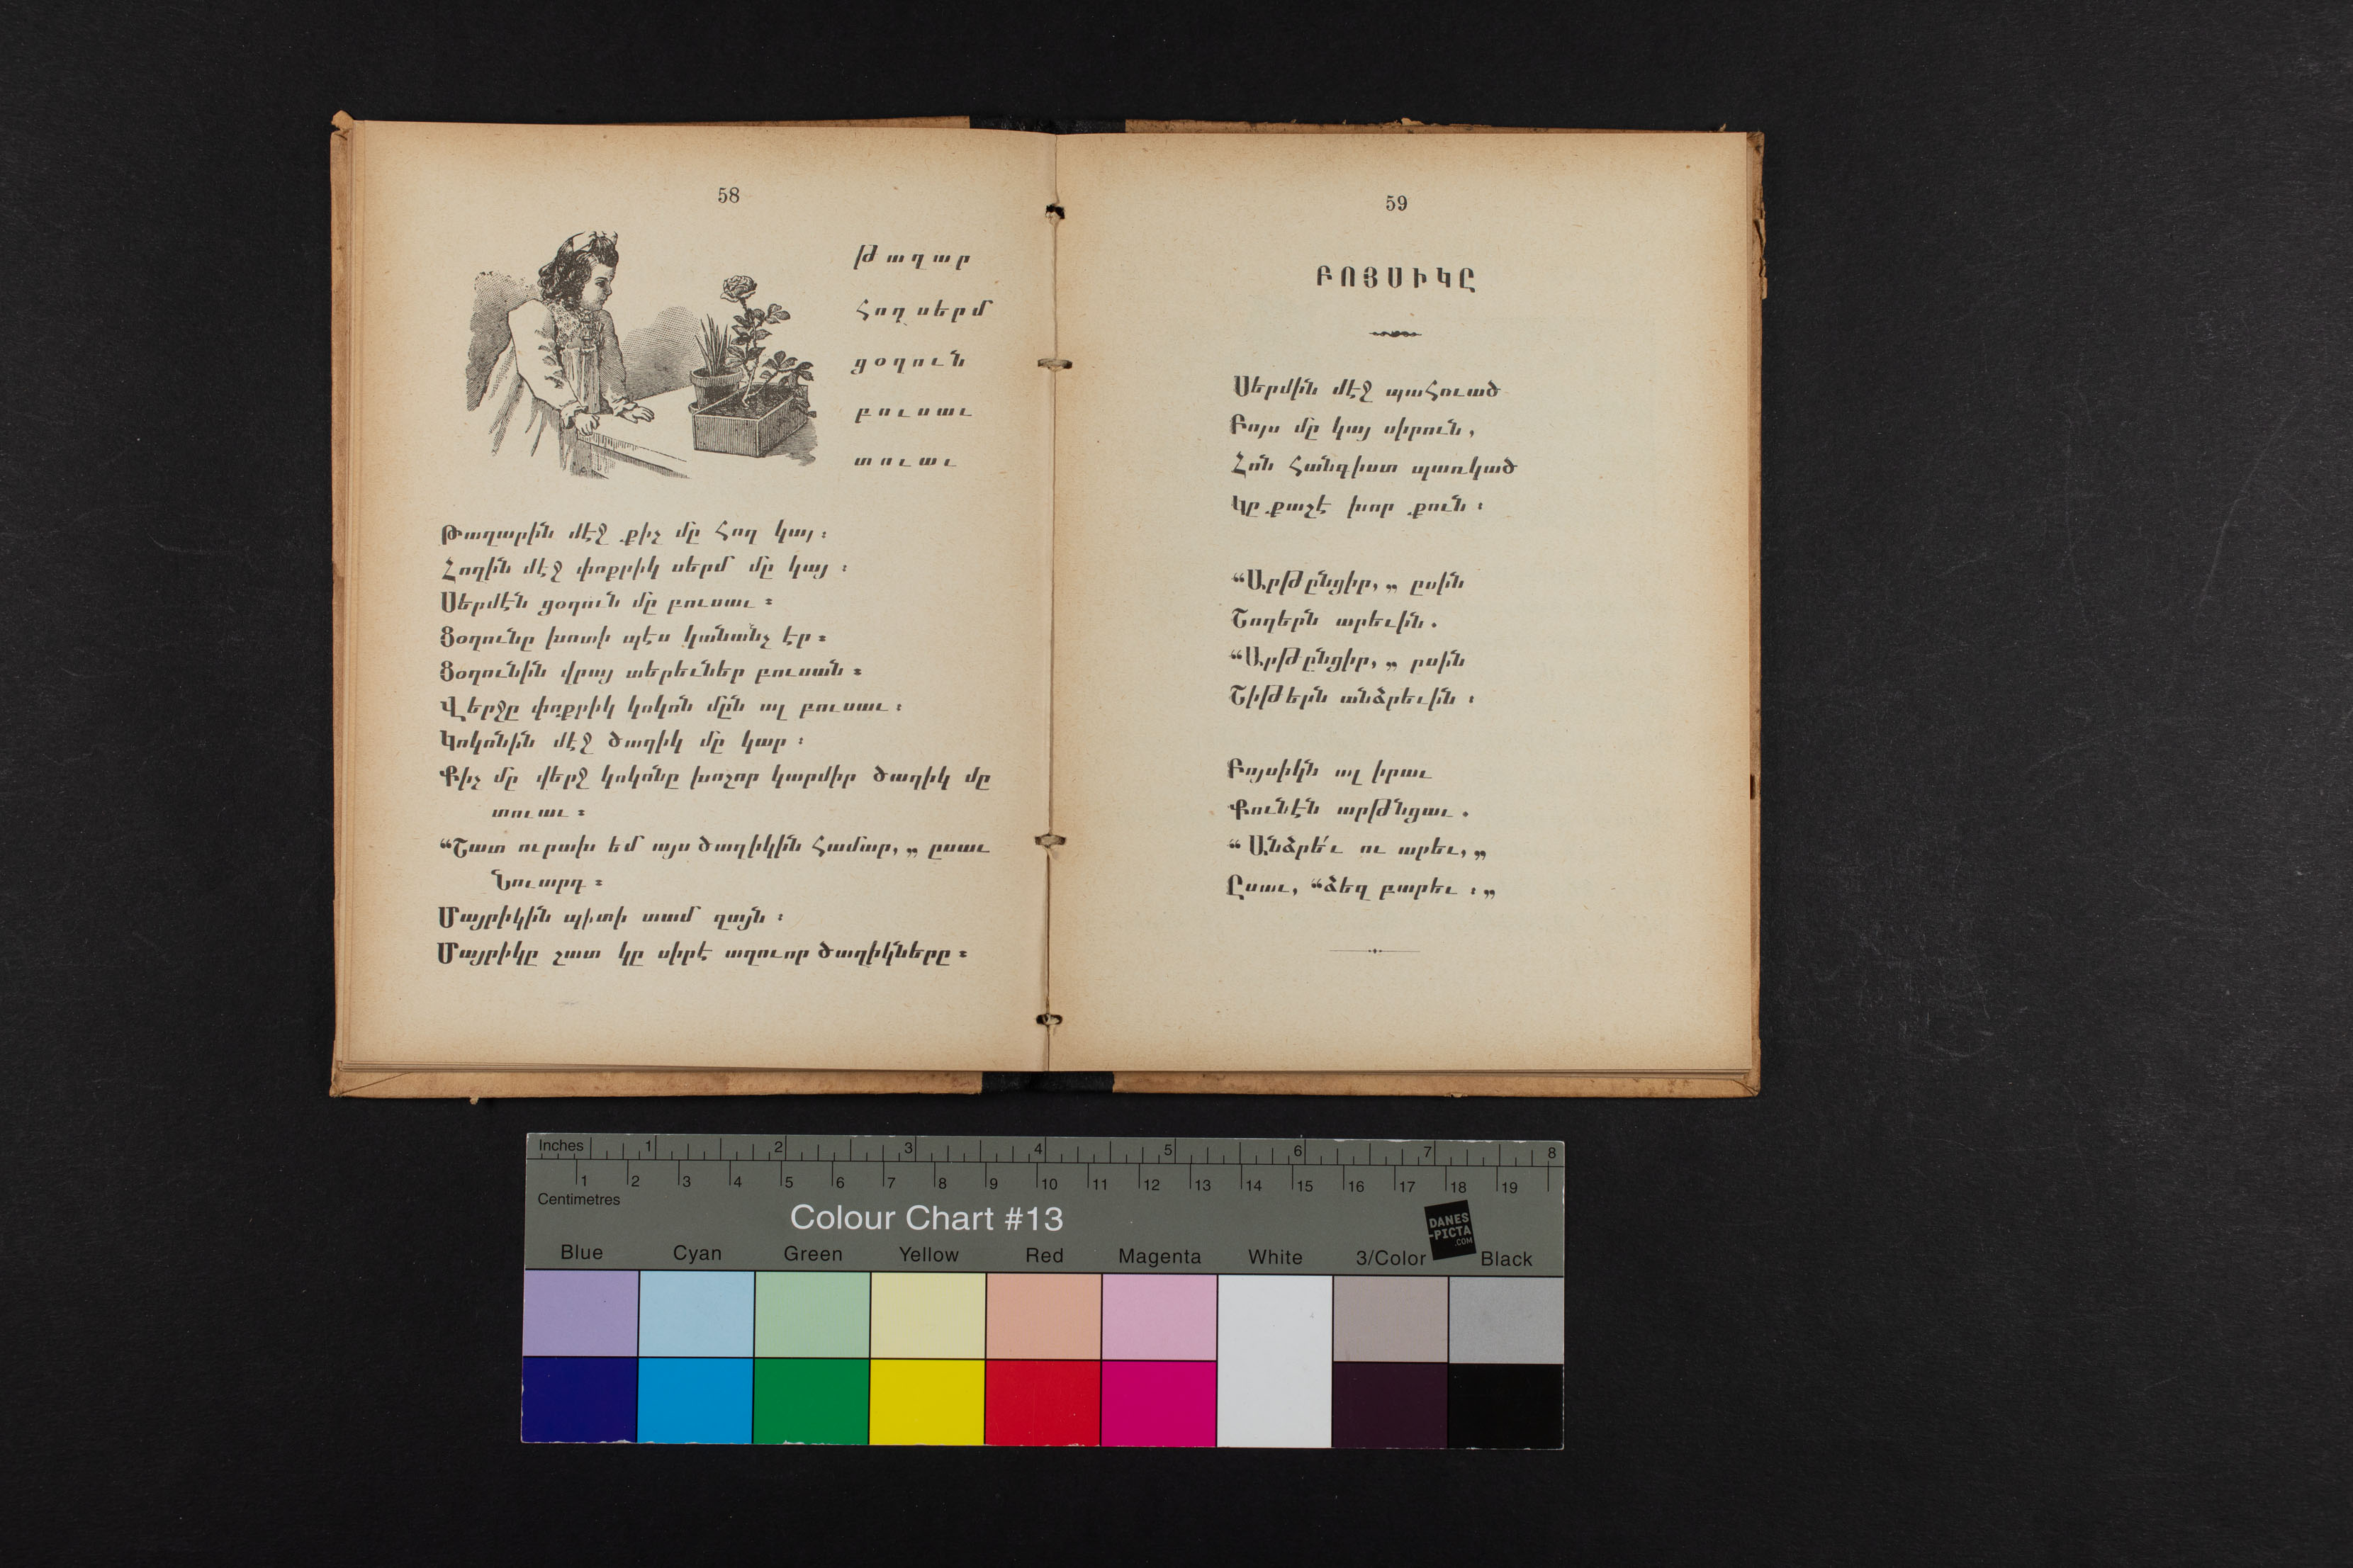 58
թաղար
հող սերմ
ցօղուն
բուսաւ
տուաւ
Թաղարին մէջ քիչ մը հող կայ։
Հողին մէջ փոքրիկ սերմ մը կայ։
Սերմէն ցօղուն մը բուսաւ։
Ցօղունը խոտի պէս կանանչ էր։
Ցօղունին վրայ տերեւներ բուսան։
Վերջը փոքրիկ կոկոն մըն ալ բուսաւ։
Կոկոնին մէջ ծաղիկ մը կար։
Քիչ մը վերջ կոկոնը խոշոր կարմիր ծաղիկ մը
տուաւ։
“Շատ ուրախ եմ այս ծաղիկին համար,„ ըսաւ
Նուարդ։
Մայրիկին պիտի տամ զայն։
Մայրիկը շատ կը սիրէ աղուոր ծաղիկները։
59
ԲՈՅՍԻԿԸ
Սերմին մէջ պահուած
Բոյս մը կայ սիրուն,
Հոն հանգիստ պառկած
Կը քաշէ խոր քուն։
“Արթընցիր,„ ըսին
Շողերն արեւին.
“Արթընցիր,„ ըսին
Շիթերն անձրեւին։
Բոյսիկն ալ իրաւ
Քունէն արթնցաւ.
“Անձրե՛ւ ու արեւ,„
Ըսաւ, “ձեզ բարեւ։„
Inches 1 2 3 4 5 6 7 8
1 2 3 4 5 6 7 8 9 10 11 12 13 14 15 16 17 18 19
Centimetres
Colour Chart #13
DANES
-PICTA
.COM
Blue Cyan Green Yellow Red Magenta White 3/Color Black